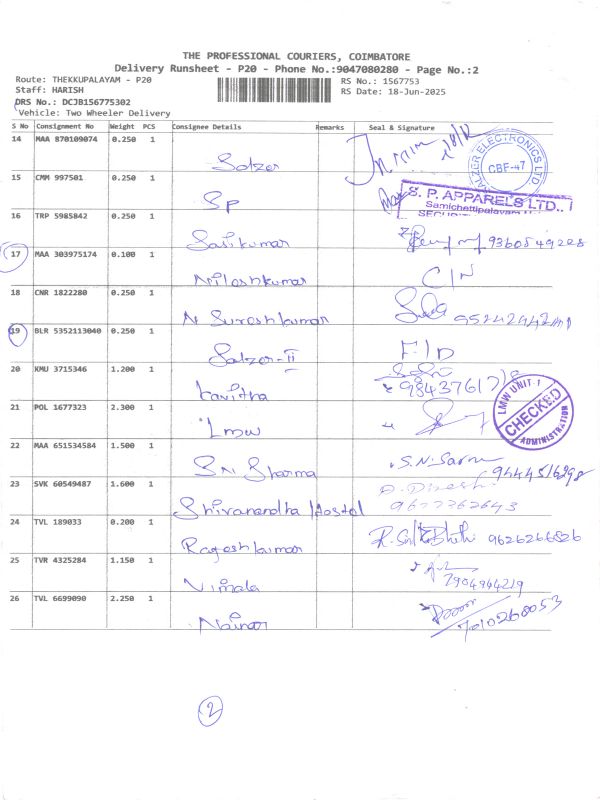 THE PROFESSIONAL COURIERS, COIMBATORE
Delivery Runsheet - P20 - Phone No.:9047080280 - Page No.:2
Route: THEKKUPALAYAM - P20
RS No.: 1567753
Staff: HARISH
RS Date: 18-Jun-2025
DRS No.: DCJB156775302
Vehicle: Two Wheeler Delivery
S No Consignment No Weight PCS Consignee Details Remarks Seal & Signature
14 MAA 870109074 0.250 1 Salzer
SALZER ELECTRONICS LTD. CBF-47
15 CMM 997501 0.250 1 SP
S. P. APPARELS LTD.,
Samichettipalayam
16 TRP 5985842 0.250 1 Sasikumar 9360549228
17 MAA 303975174 0.100 1 Nileshkumar C/N
18 CNR 1822280 0.250 1 N Sureshkumar
19 BLR 5352113040 0.250 1 Salzer-II F/D
20 KMU 3715346 1.200 1 Kavitha
21 POL 1677323 2.300 1 LMW
LMW UNIT-1 CHECKED ADMINISTRATION
22 MAA 651534584 1.500 1 Sri Sharma S.N. 9444516298
23 SVK 60549487 1.600 1 Shivanandha Hostel D. Dinesh
9677362643
24 TVL 189033 0.200 1 Rajeshkumar 9626266826
25 TVR 4325284 1.150 1 Vimala
7904944219
26 TVL 6699090 2.250 1 Nainar
7010260053
2